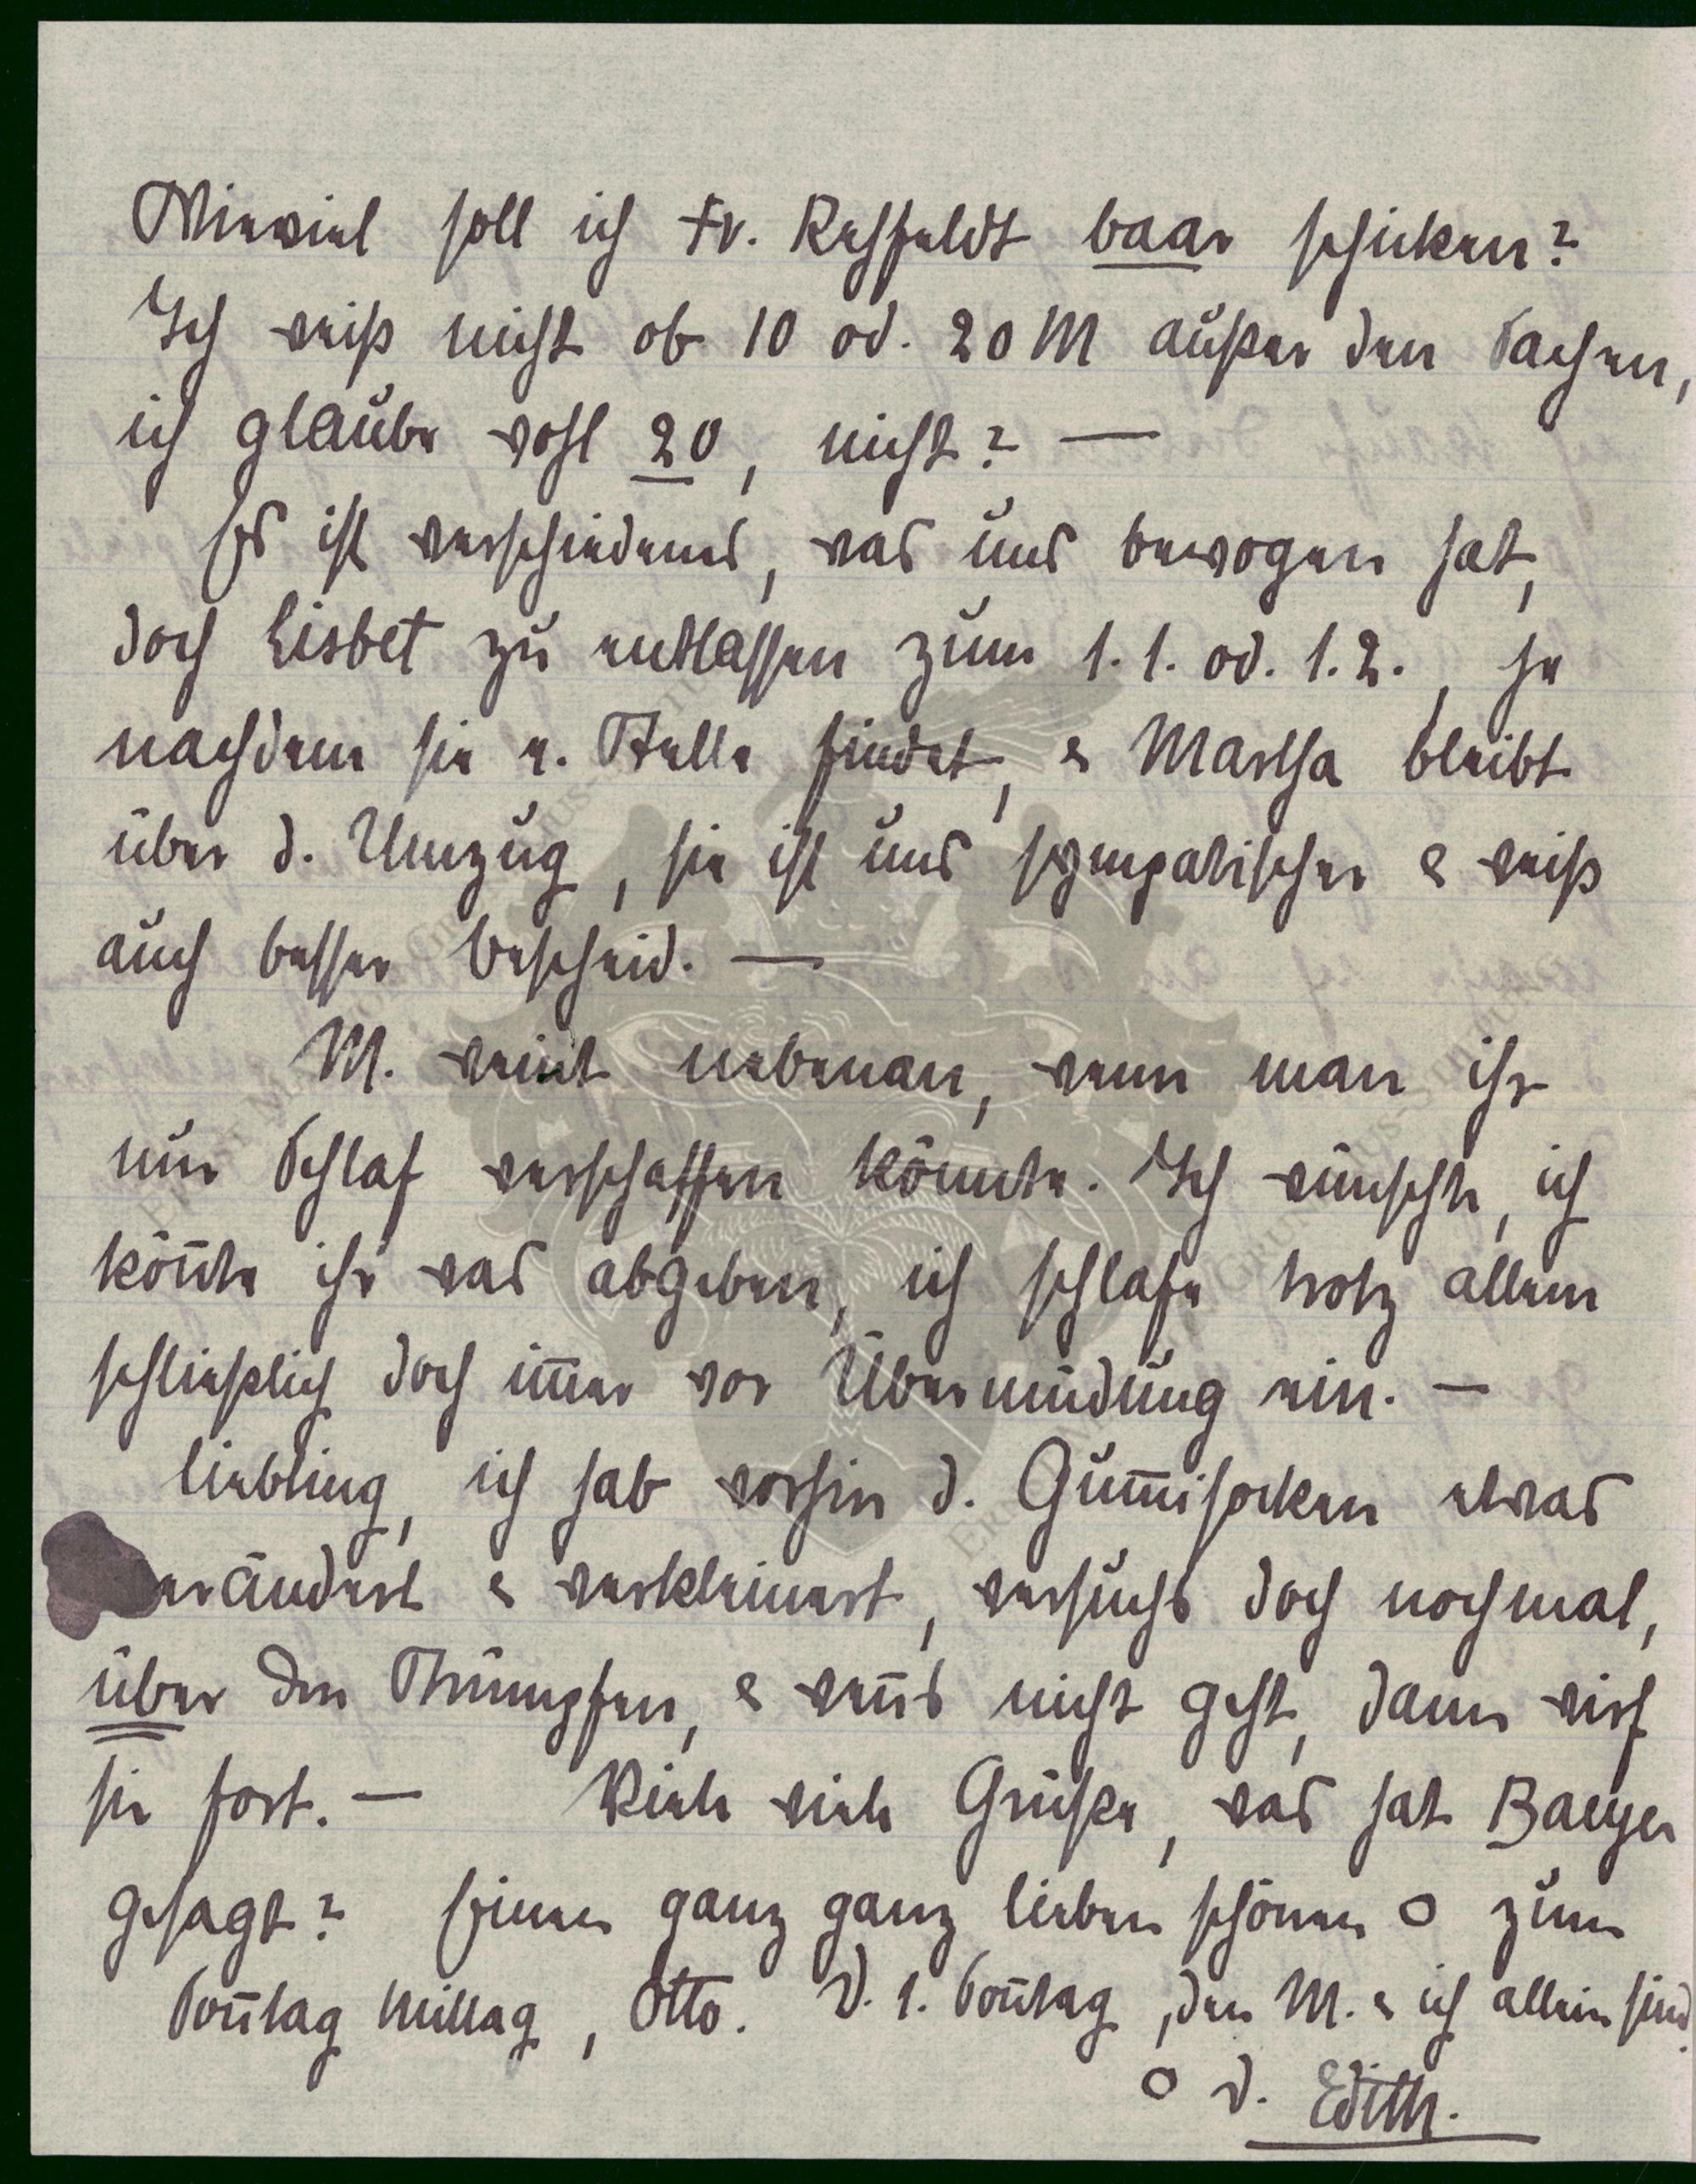 Wieviel soll ich Fr. Rehfeldt baar schicken?
Ich weiß nicht ob 10 od. 20 M außer den Sachen,
ich glaube wohl 20, nicht? —
Es ist verschiedenes, was uns bewogen hat,
doch Lisbet zu entlassen zum 1.1. od. 1.2., je
nachdem sie e. Stelle findet, & Martha bleibt
über d. Umzug, sie ist uns sympatischer & weiß
auch besser Bescheid. —
M. weint nebenan, wenn man ihr
nur Schlaf verschaffen könnte. Ich wünschte, ich
kön̅te ihr was abgeben, ich schlafe trotz allem
schließlich doch im̅er vor Übermüdung ein. —
Liebling, ich hab vorhin d. Gum̅isocken etwas
verändert & verkleinert, versuchs doch nochmal,
über den Strümpfen, & wen̅s nicht geht, dann wirf
sie fort. — Viele viele Grüße, was hat Baeyer
gesagt? Einen ganz ganz lieben schönen O zum
Son̅tag Mittag, Otto. D. 1. Son̅tag, den M. & ich allein sind.
O D. Edith.